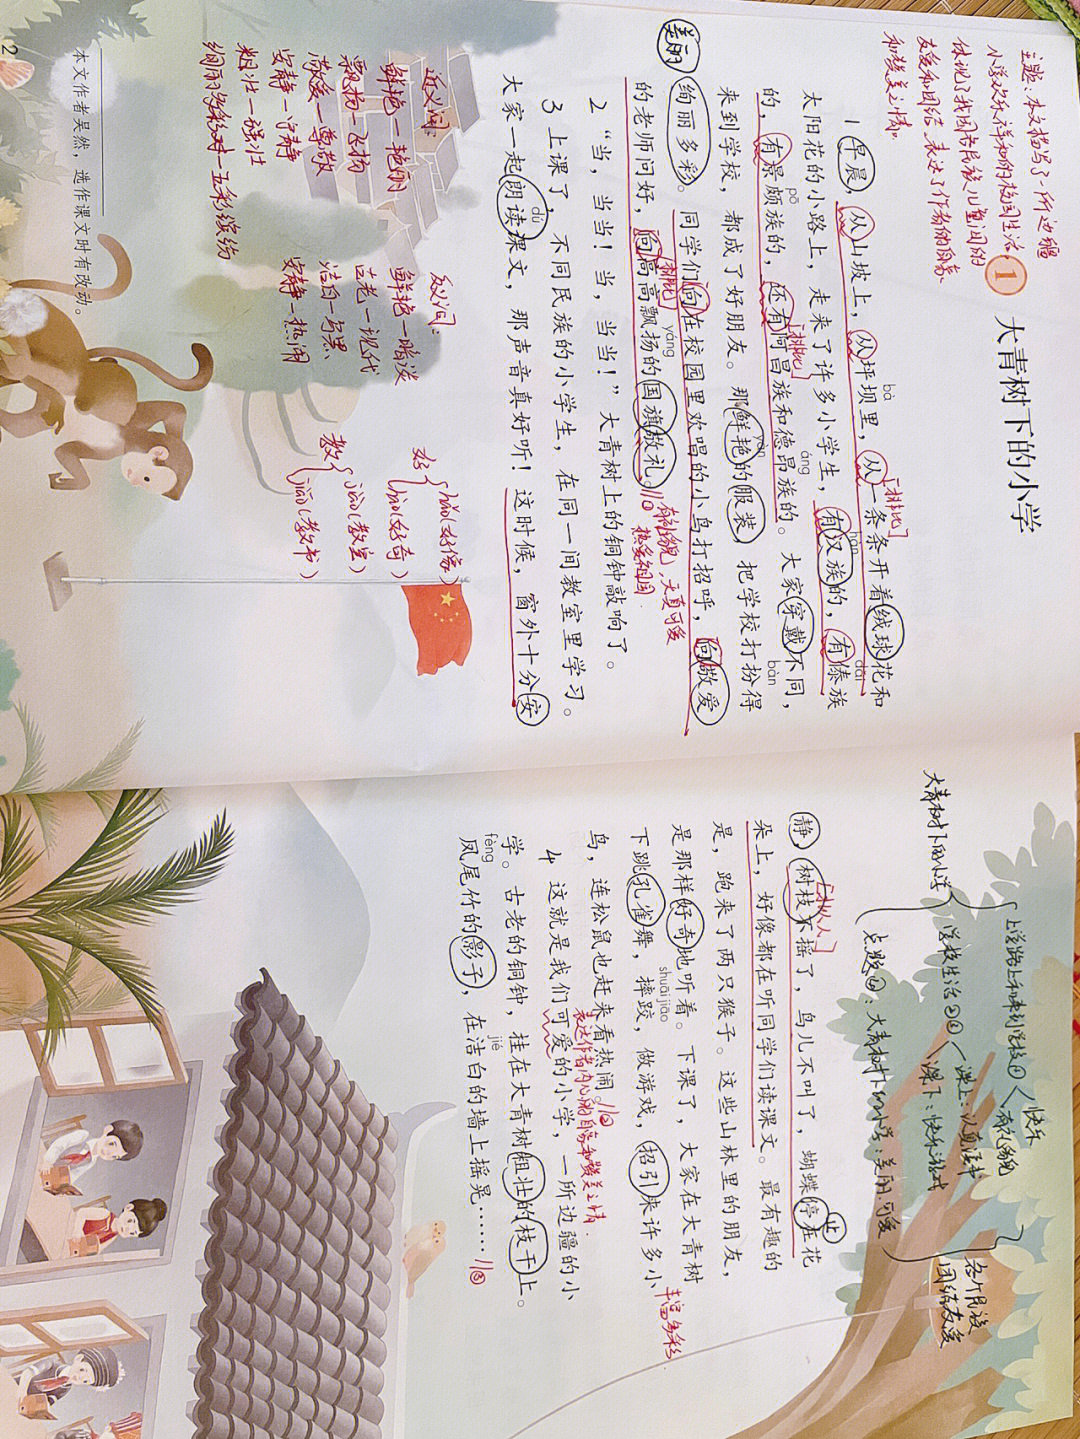 主题：本文描写了一所边疆
小学欢乐祥和的校园生活，
体现了我国各民族儿童间的
友爱和团结，表达了作者的自豪
和赞美之情。
1
大青树下的小学
1 早晨，从山坡上，从坪坝里，从一条条开着绒球花和
bà
[排比]
太阳花的小路上，走来了许多小学生，有汉族的，有傣族
hàn
dǎi
的，有景颇族的，还有阿昌族和德昂族的。大家穿戴不同，
pō
[排比]
áng
来到学校，都成了好朋友。那鲜艳的服装，把学校打扮得
bàn
美丽
绚丽多彩。同学们向在校园里欢唱的小鸟打招呼，向敬爱
的老师问好，向高高飘扬的国旗敬礼。
[排比]
yáng
有礼貌，天真可爱
热爱祖国
2 “当，当当！当，当当！”大青树上的铜钟敲响了。
3 上课了，不同民族的小学生，在同一间教室里学习。
大家一起朗读课文，那声音真好听！这时候，窗外十分安
dú
近义词：
鲜艳—艳丽
飘扬—飞扬
敬爱—尊敬
安静—宁静
粗壮—强壮
绚丽多彩—五彩缤纷
反义词：
鲜艳—暗淡
古老—现代
洁白—乌黑
安静—热闹
好
hǎo(好像)
hào(好奇)
教
jiào(教室)
jiāo(教书)
本文作者吴然，选作课文时有改动。
2
大青树下的小学
上学路上和来到学校①
快乐
有礼貌
学校生活②③
课上：认真读书
课下：快乐游戏
点题④：大青树下的小学：美丽可爱
各个民族
团结友爱
静，树枝不摇了，鸟儿不叫了，蝴蝶停在花
[拟人]
止
朵上，好像都在听同学们读课文。最有趣的
是，跑来了两只猴子。这些山林里的朋友，
是那样好奇地听着。下课了，大家在大青树
下跳孔雀舞，摔跤，做游戏，招引来许多小
shuāi jiāo
丰富多彩
鸟，连松鼠也赶来看热闹。
4 这就是我们可爱的小学，一所边疆的小
表达作者内心的自豪和赞美之情
学。古老的铜钟，挂在大青树粗壮的枝干上。
凤尾竹的影子，在洁白的墙上摇晃……
fèng
jié